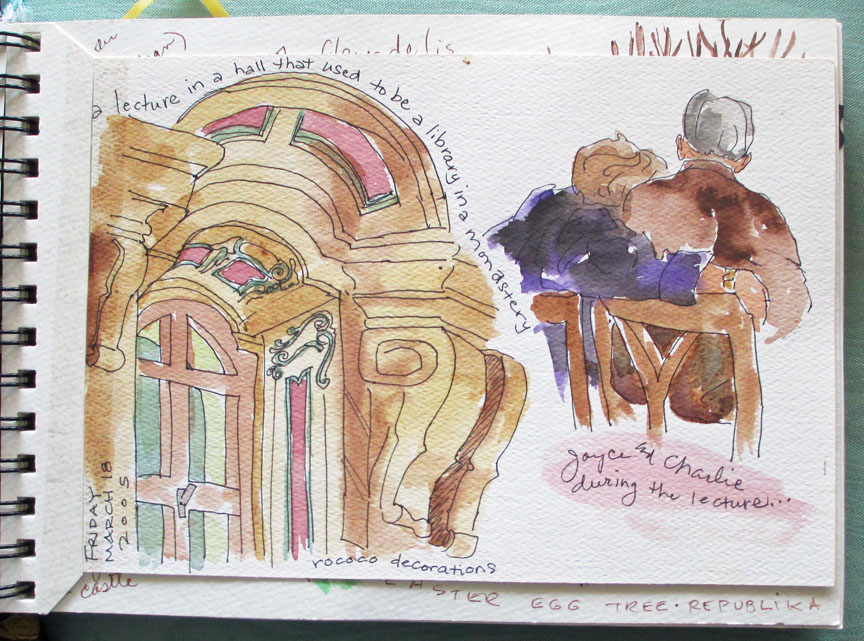 a lecture in a hall that used to be a library in a monastery
Joyce & Charlie
during the lecture...
FRIDAY
MARCH 18
2005
rococo decorations
castle
EASTER EGG TREE · REPUBLIKA